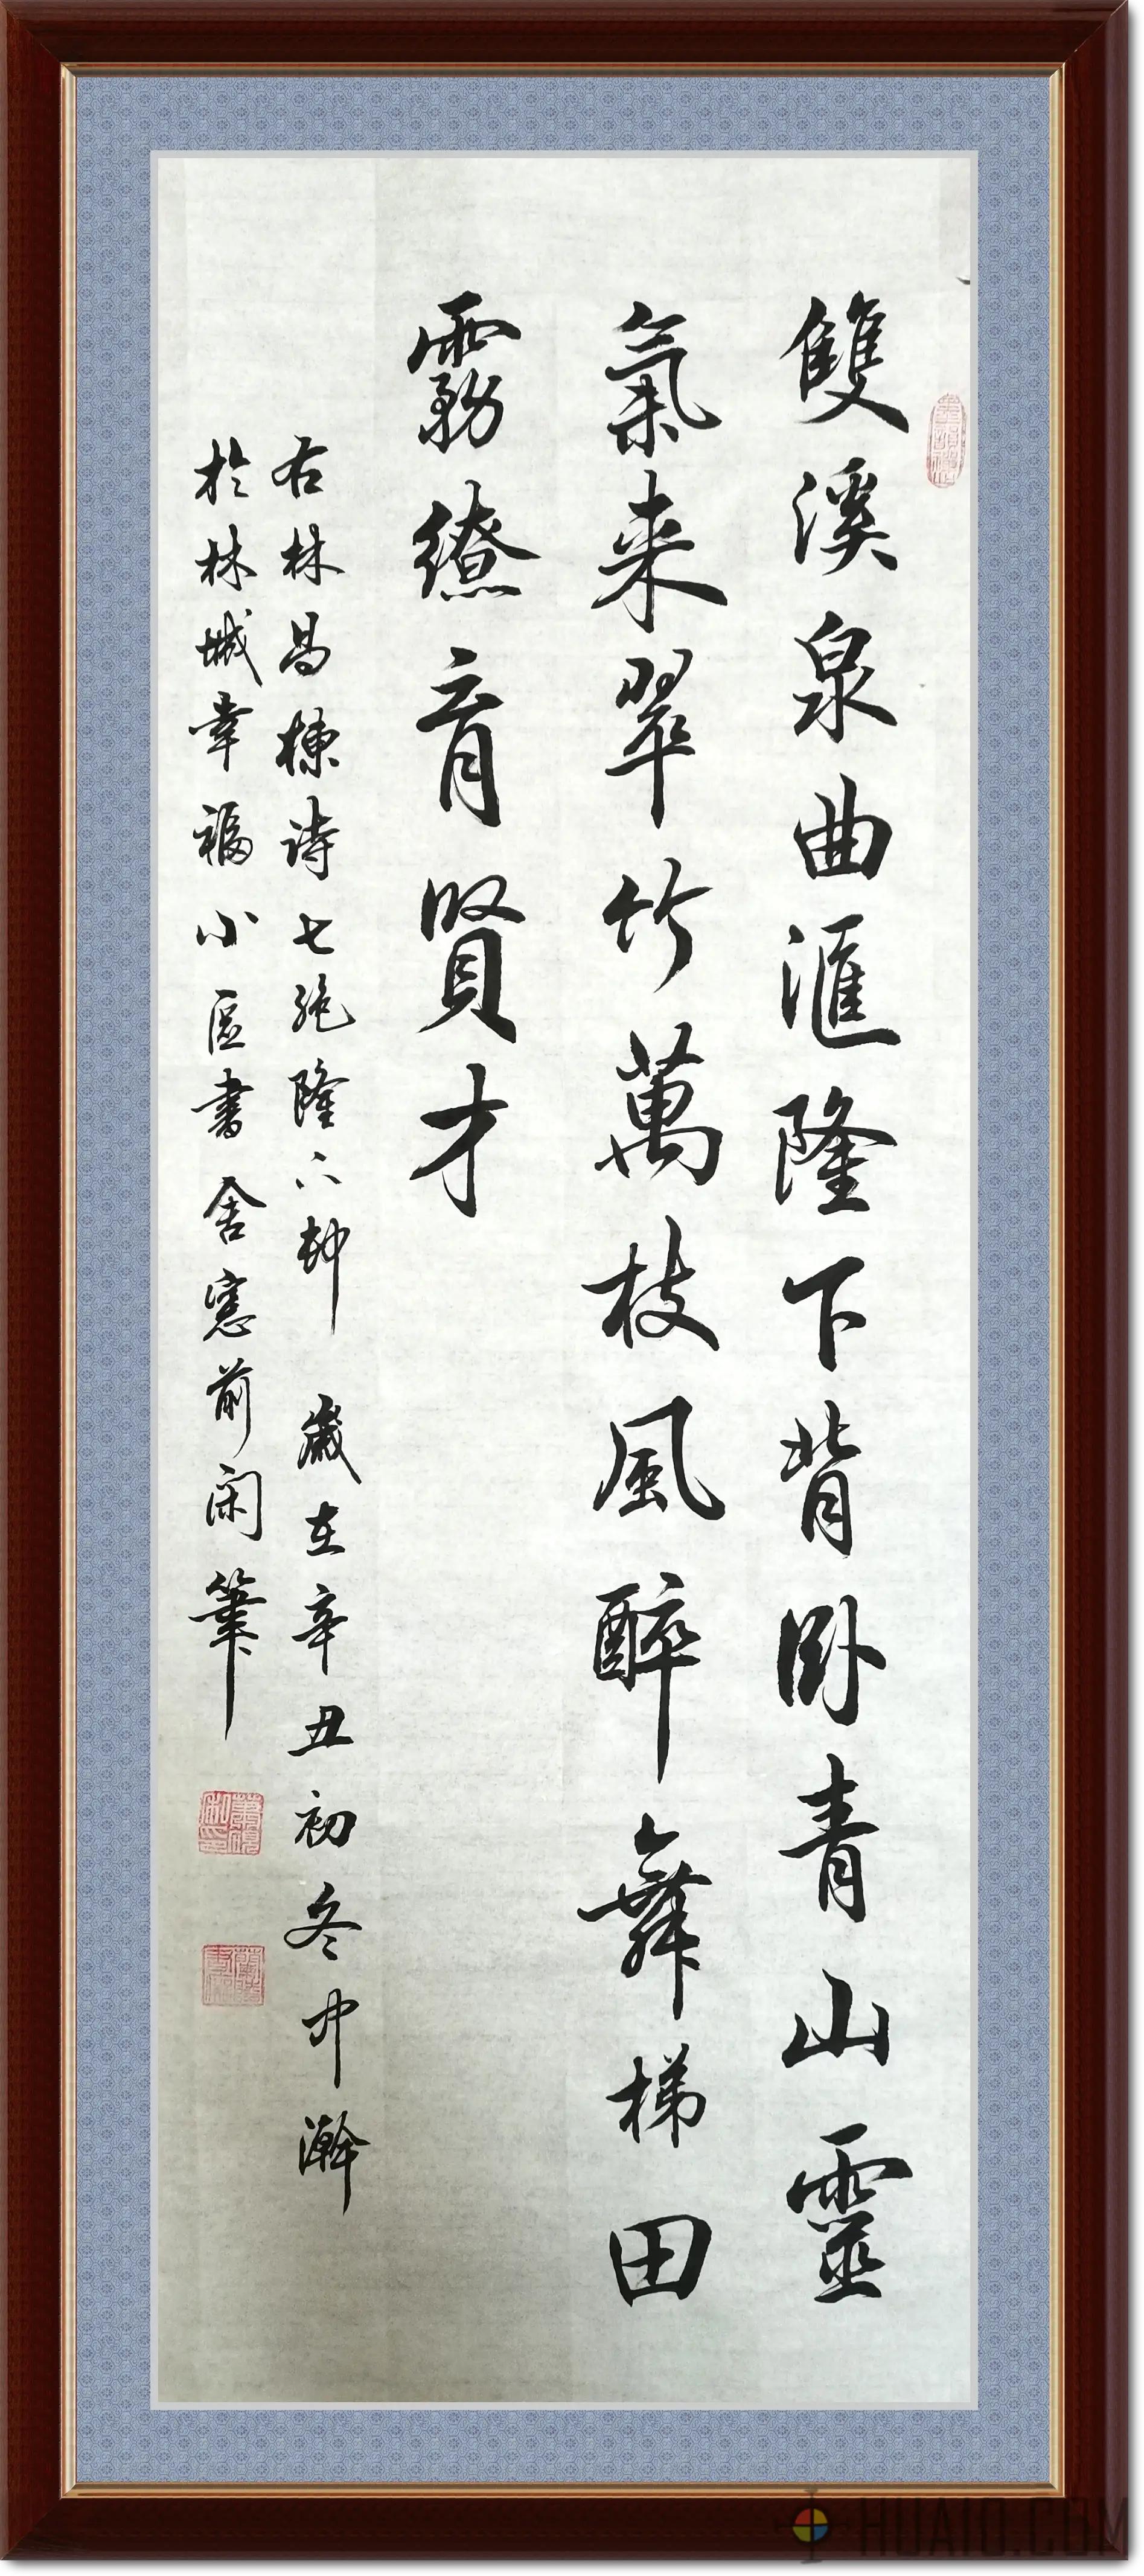 雙溪泉曲滙隆下背卧青山靈
氣来翠竹萬枝風醉舞梯田
霧繚育賢才
右林昌棟诗七绝隆下邨 歲在辛丑初冬中瀚
於林城幸福小區書舍窓前闲筆
HUAIO.COM